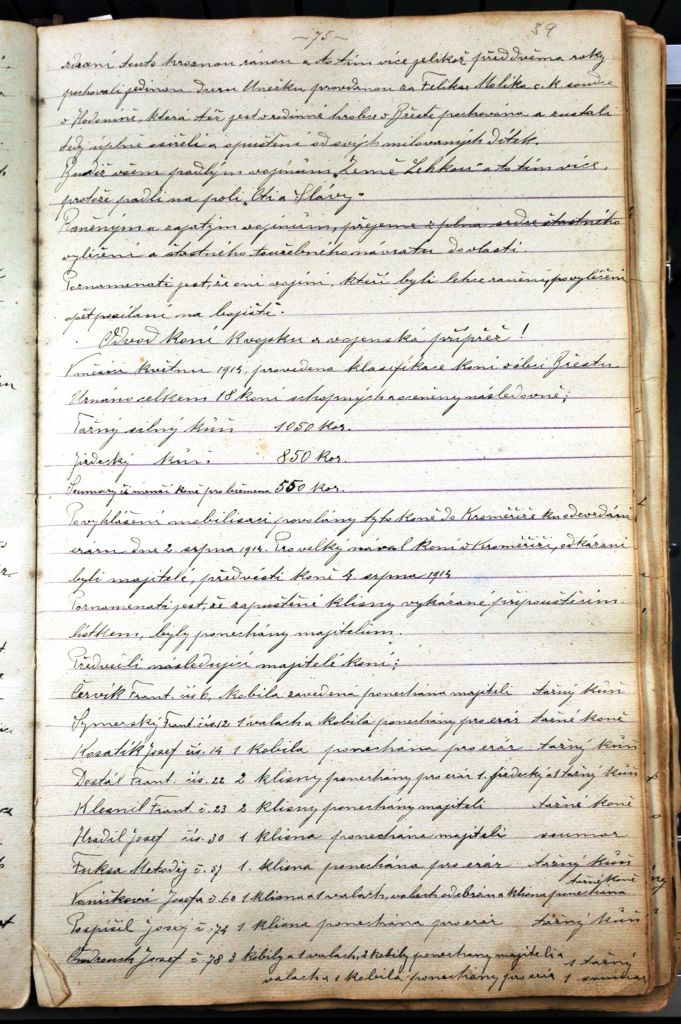 -75- 39
zdraní touto hroznou ránou a to tím více jelikož před dvěma roky
pochovali jedinou dceru Anežku provdanou za Felikse Molika c. k. soudce
v Hodoníně, která též jest v rodinné hrobce v Břestě pochována a zůstali
tedy úplně osiřelí a opuštěni od svých milovaných dítek.
Budiž všem padlým vojínům „Země Lehkou" a to tím více,
protože padli na poli „Cti a Slávy".
Raněným a zajatým vojínům, přejeme z plna srdce šťastného
vyléčení a šťastného toužebného návratu do vlasti.
Poznamenati jest, že oni vojíni, kteří byli lehce raněni, po vyléčení
opět posílani na bojiště.
Odvod koní k vojsku a vojenská přípřež!
V měsíci květnu 1914, provedena klasifikace koní v obci Břestu.
Uznáno celkem 18 koní schopných a oceněny následovně;
Tažný silný kůň 1050 Kor.
Jízdecký kůň 850 Kor.
Soumar, či menší koně pro břemena 550 Kor.
Po vyhlášení mobilisaci povolány tyto koně do Kroměříže ku odevzdání
eraru dne 2. srpna 1914. Pro velký nával koní v Kroměříži, odkázáni
byli majitelé, předvésti koně 4. srpna 1914
Poznamenati jest, že zapuštěné klisny vykázané připouštěcím
lístkem, byly ponechány majitelům.
Předvedli následující majitelé koní;
Červík Frant. čís 6, kobila zavedena ponechána majiteli tažný kůň
Symerský Frant čís. 12 1 valach a kobila ponechány pro erár tažné koně
Kosatík Josef čís. 14 1 kobila ponechána pro erár tažný kůň
Dostál Frant. čís. 22 2 klisny ponechány pro erár 1. jízdecký a 1 tažný kůň
Klesnil Frant č. 23 2 klisny ponechány majiteli tažné koně
Hradil Josef čís. 30 1 klisna ponechána majiteli soumar
Fuksa Metoděj č. 51 1. klisna ponechána pro erár tažný kůň
Josefa č. 60 1 klisna a 1 valach, valach odebrán a klisna ponechána tažné koně
Pospíšil Josef č. 74 1 klisna ponechána pro erár tažný kůň
Josef č. 78 3 kobily a 1 valach, 2 kobily ponechány majiteli a 1 tažný
valach a 1 kobila ponechány pro erár 1 soumar